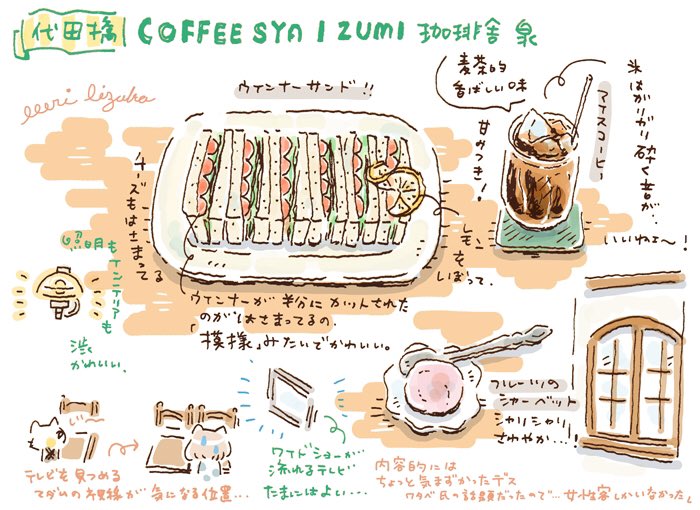 代田橋 COFFEE SYA IZUMI 珈琲舎 泉
eeri lizuka
ウインナーサンド!!
麦茶的
香ばしい味
甘みつき!
アイスコーヒー
氷はガリガリ砕く音が…
いいねぇ〜!
チーズもはさまってる
レモンを
しぼって。
ウインナーが半分にカットされた
のがはさまってるの。
「模様」みたいでかわいい。
照明も
インテリアも
渋
かわいい。
フルーツの
シャーベット
シャリシャリ
さわやか…!
じ〜
テレビを見つめる
マダムの視線が 気になる位置…
ワイドショーが
流れるテレビ
たまにはよい…
内容的には
ちょっと気まずかったデス
ワタベ氏の話題だったので… 女性客しかいなかったし